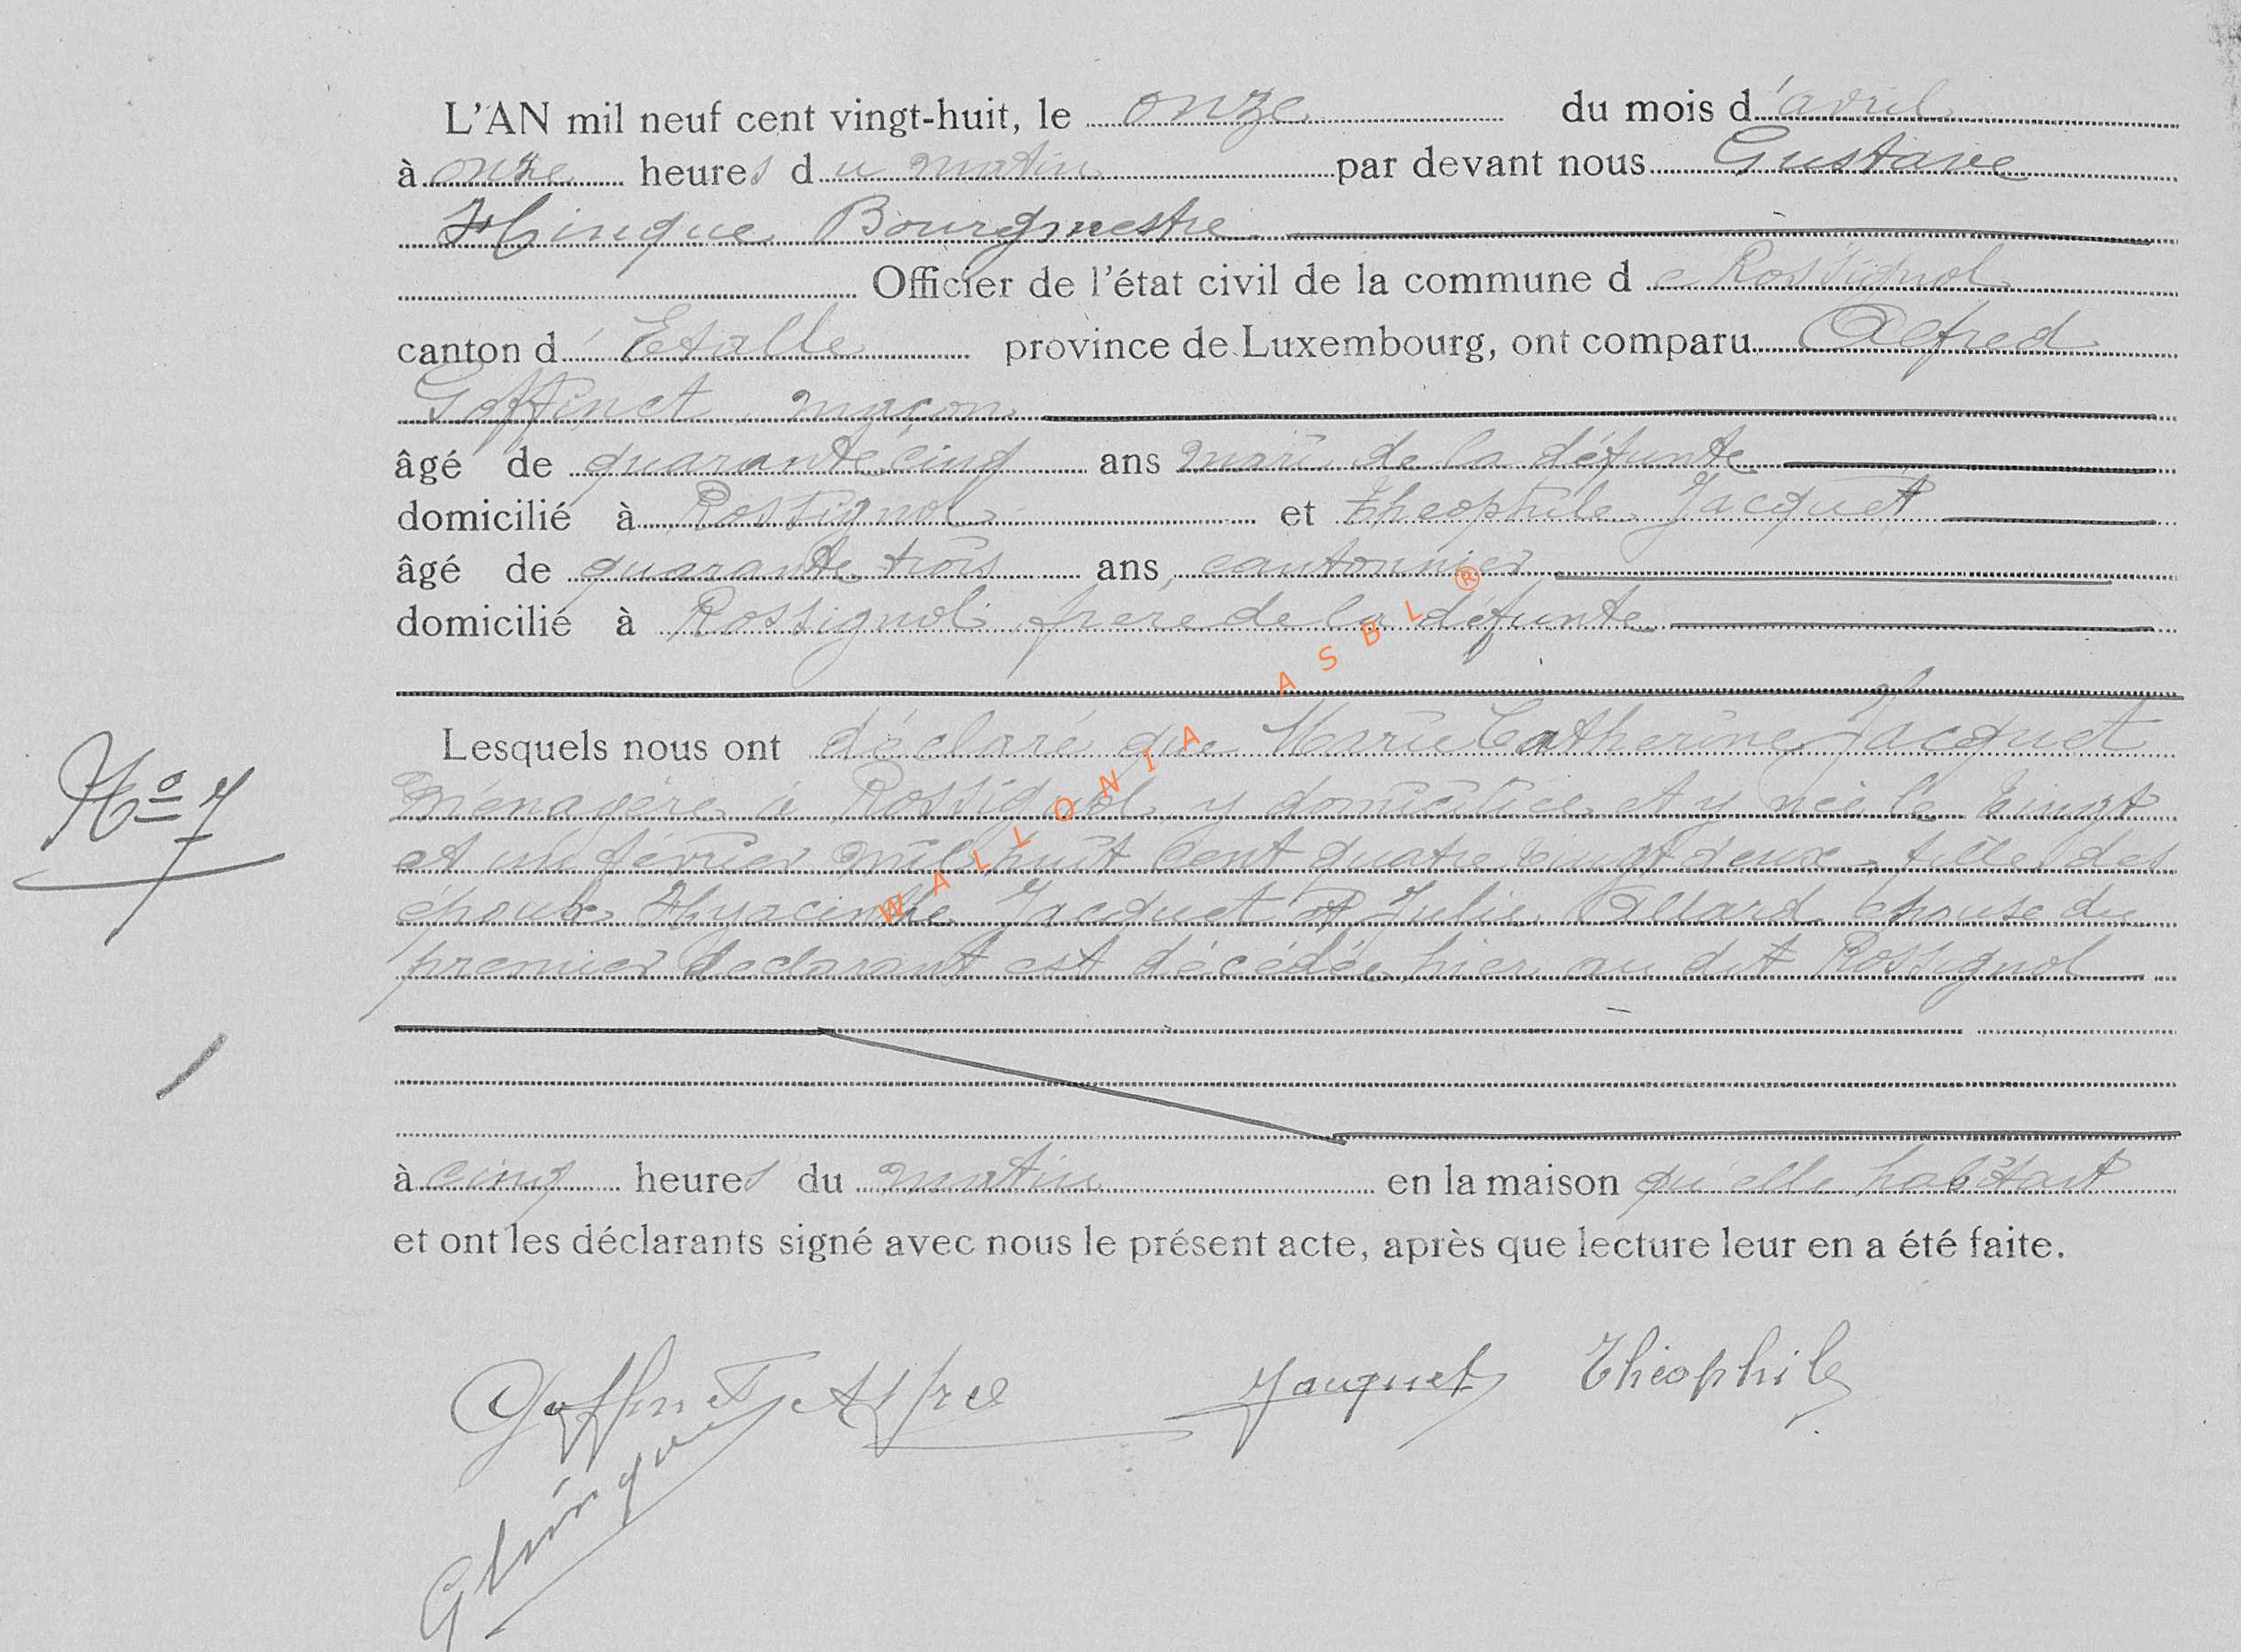 L'AN mil neuf cent vingt-huit, le onze du mois d'avril
à onze heures du matin par devant nous Gustave
Hinque Bourgmestre
Officier de l'état civil de la commune de Rossignol
canton d'Etalle province de Luxembourg, ont comparu Alfred
Goffinet, maçon
âgé de quarante cinq ans mari de la défunte
domicilié à Rossignol et Theophile Jacquet
âgé de quarante trois ans, cantonnier
domicilié à Rossignol frère de la défunte
Lesquels nous ont déclaré que Marie Catherine Jacquet
N° 7
ménagère à Rossignol y domiciliée et y née le vingt
et un février mil huit cent quatre vingt deux, fille des
époux Hyacinthe Jacquet et Julie Allard, épouse du
premier déclarant est décédée hier au dit Rossignol
à cinq heures du matin en la maison qu'elle habitait
et ont les déclarants signé avec nous le présent acte, après que lecture leur en a été faite.
Goffinet Alfred Jacquet Théophile
G Hinque
WALLONIA ASBL ®